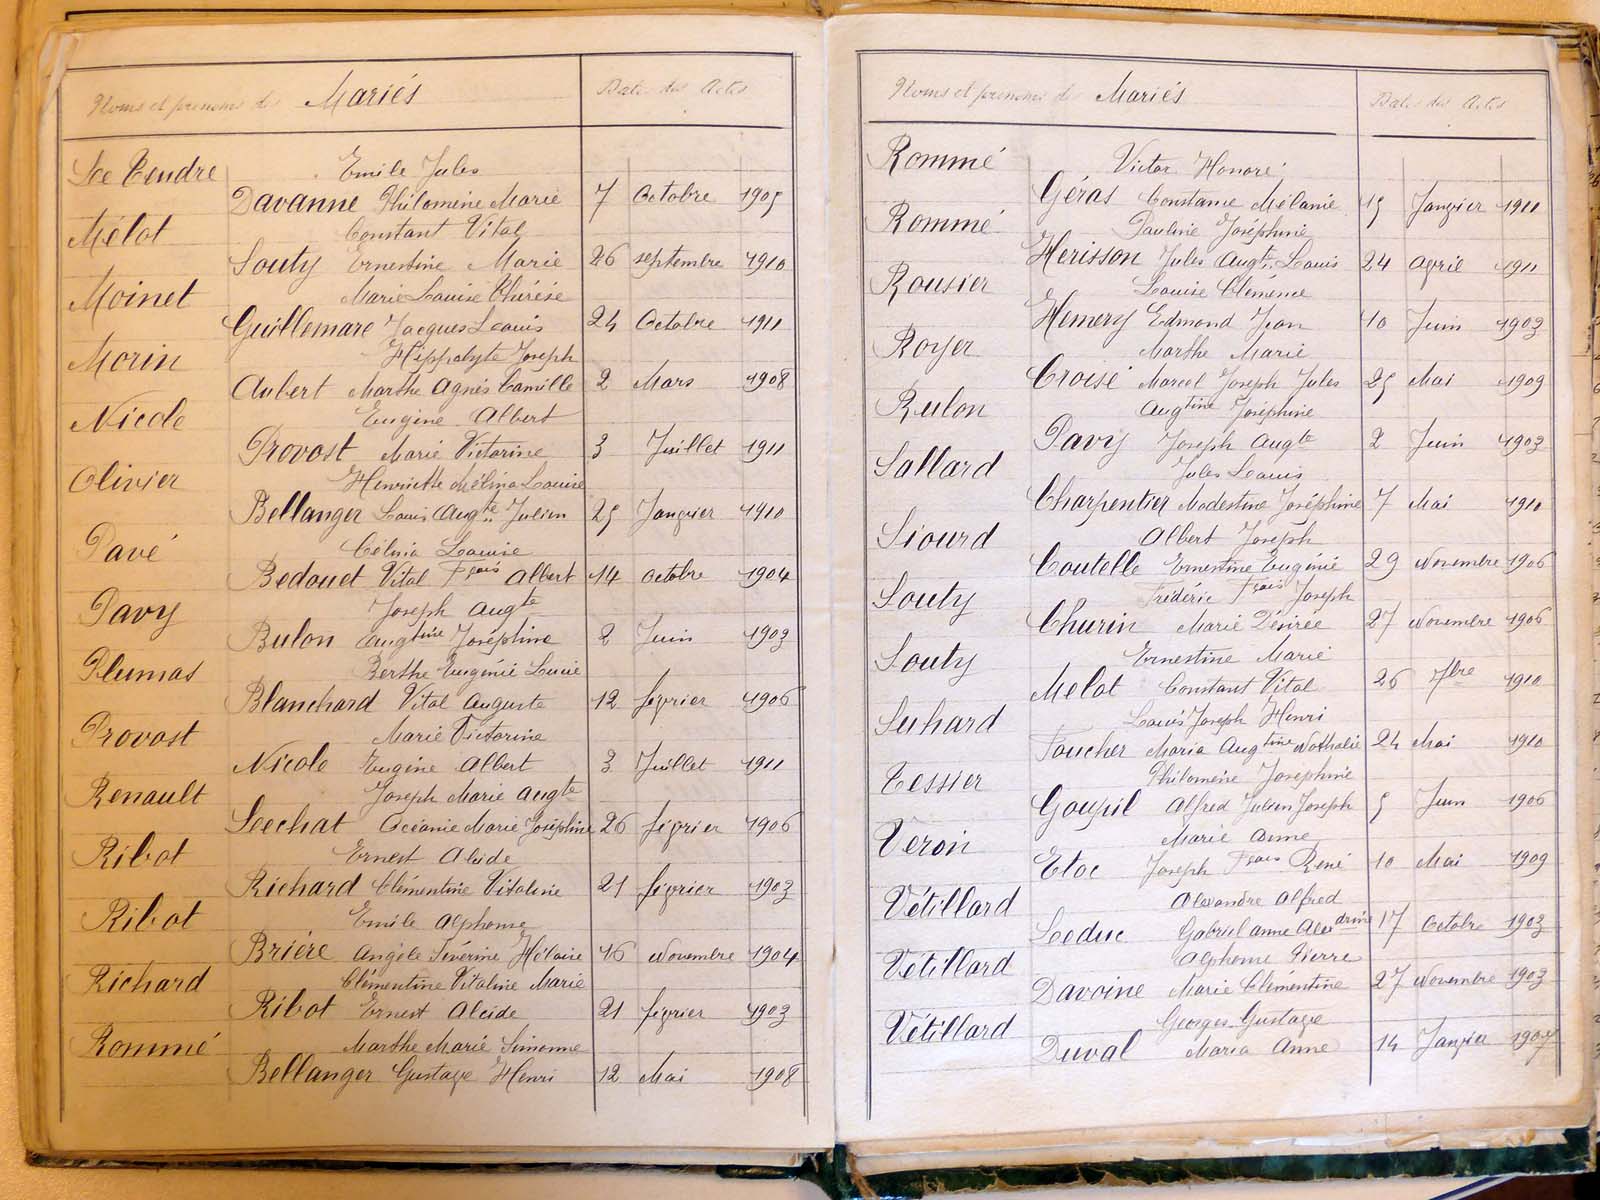 Noms et prénoms des Mariés Date des Actes
Le Tendre Emile Jules
Davanne Philomène Marie 7 Octobre 1905
Mélot Constant Vital
Souty Ernestine Marie 26 septembre 1910
Moinet Marie Louise Thérèse
Guillemare Jacques Louis 24 Octobre 1911
Morin Hippolyte Joseph
Aubert Marthe Agnès Camille 2 Mars 1908
Nicole Eugène Albert
Provost Marie Victorine 3 Juillet 1911
Olivier Henriette Mélina Louise
Bellanger Louis Augte Julien 25 Janvier 1910
Pavé Célina Louise
Bedouet Vital Fçois Albert 14 Octobre 1904
Pavy Joseph Augte
Bulon Augtine Joséphine 2 Juin 1903
Plumas Berthe Eugénie Lucie
Blanchard Vital Auguste 12 février 1906
Provost Marie Victorine
Nicole Eugène Albert 3 Juillet 1911
Renault Joseph Marie Augte
Lechat Océanie Marie Joséphine 26 février 1906
Ribot Ernest Alcide
Richard Clémentine Vitaline 21 février 1903
Ribot Emile Alphonse
Brière Angèle Séverine Hilaire 16 Novembre 1904
Richard Clémentine Vitaline Marie
Ribot Ernest Alcide 21 février 1903
Rommé Marthe Marie Simonne
Bellanger Gustave Henri 12 Mai 1908
Noms et prénoms des Mariés Date des Actes
Rommé Victor Honoré
Géras Constance Mélanie 15 Janvier 1911
Rommé Pauline Joséphine
Herisson Jules Augte Louis 24 Avril 1911
Rousier Louise Clémence
Hemery Edmond Jean 10 Juin 1903
Royer Marthe Marie
Croisé Marcel Joseph Jules 25 Mai 1909
Rulon Augtine Joséphine
Pavy Joseph Augte 2 Juin 1903
Sallard Jules Louis
Charpentier Modestine Joséphine 7 Mai 1910
Siourd Albert Joseph
Coutelle Ernestine Eugénie 29 Novembre 1906
Souty Frédéric Fçois Joseph
Churin Marie Désirée 27 Novembre 1906
Souty Ernestine Marie
Melot Constant Vital 26 7bre 1910
Suhard Louis Joseph Henri
Foucher Maria Augtine Nathalie 24 Mai 1910
Tessier Philomène Joséphine
Goupil Alfred Julien Joseph 5 Juin 1906
Veron Marie Anne
Etoc Joseph Fçois René 10 Mai 1909
Vétillard Alexandre Alfred
Leduc Gabriel Anne Alexdrine 17 Octobre 1903
Vétillard Alphonse Pierre
Davoine Marie Clémentine 27 Novembre 1903
Vétillard Georges Gustave
Duval Maria Anne 14 Janvier 1907